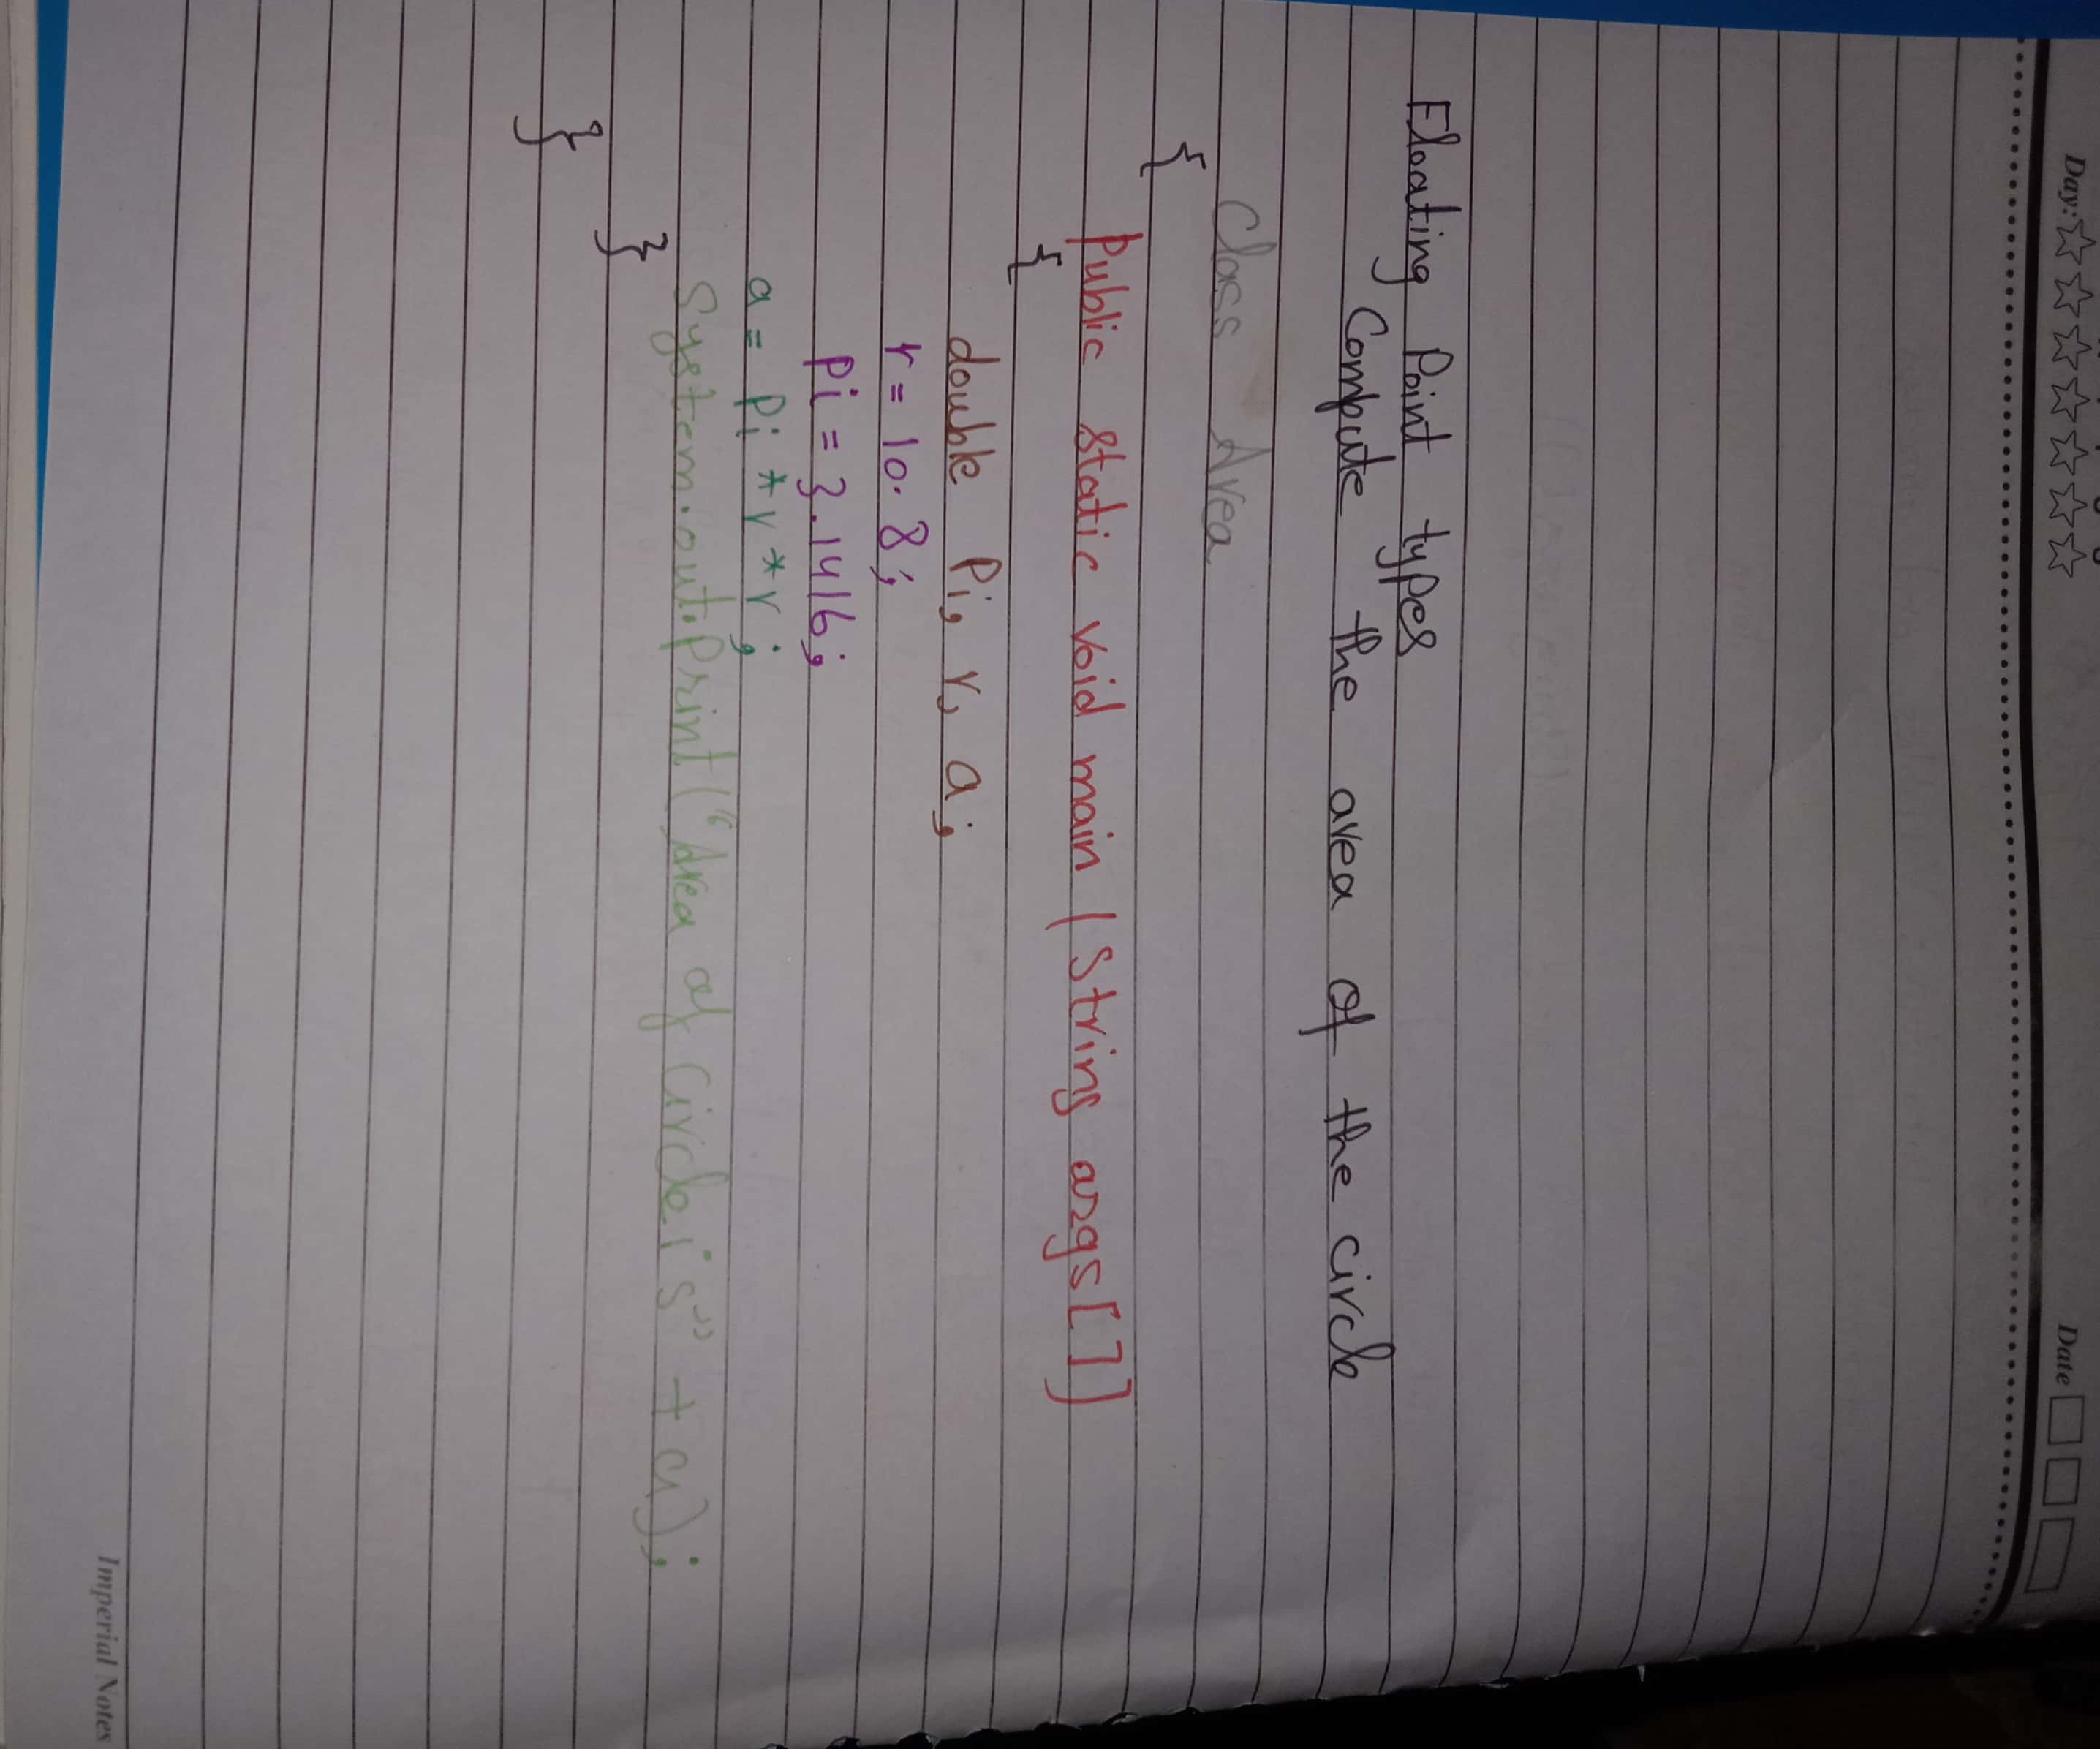 Day:
Date
Floating Point types
Compute the area of the circle
Class Area
{
Public static void main (String args[])
{
double Pi, r, a;
r = 10.8;
Pi = 3.1416;
a = Pi * r * r;
System.out.Print("Area of Circle is" + a);
}
}
Imperial Notes